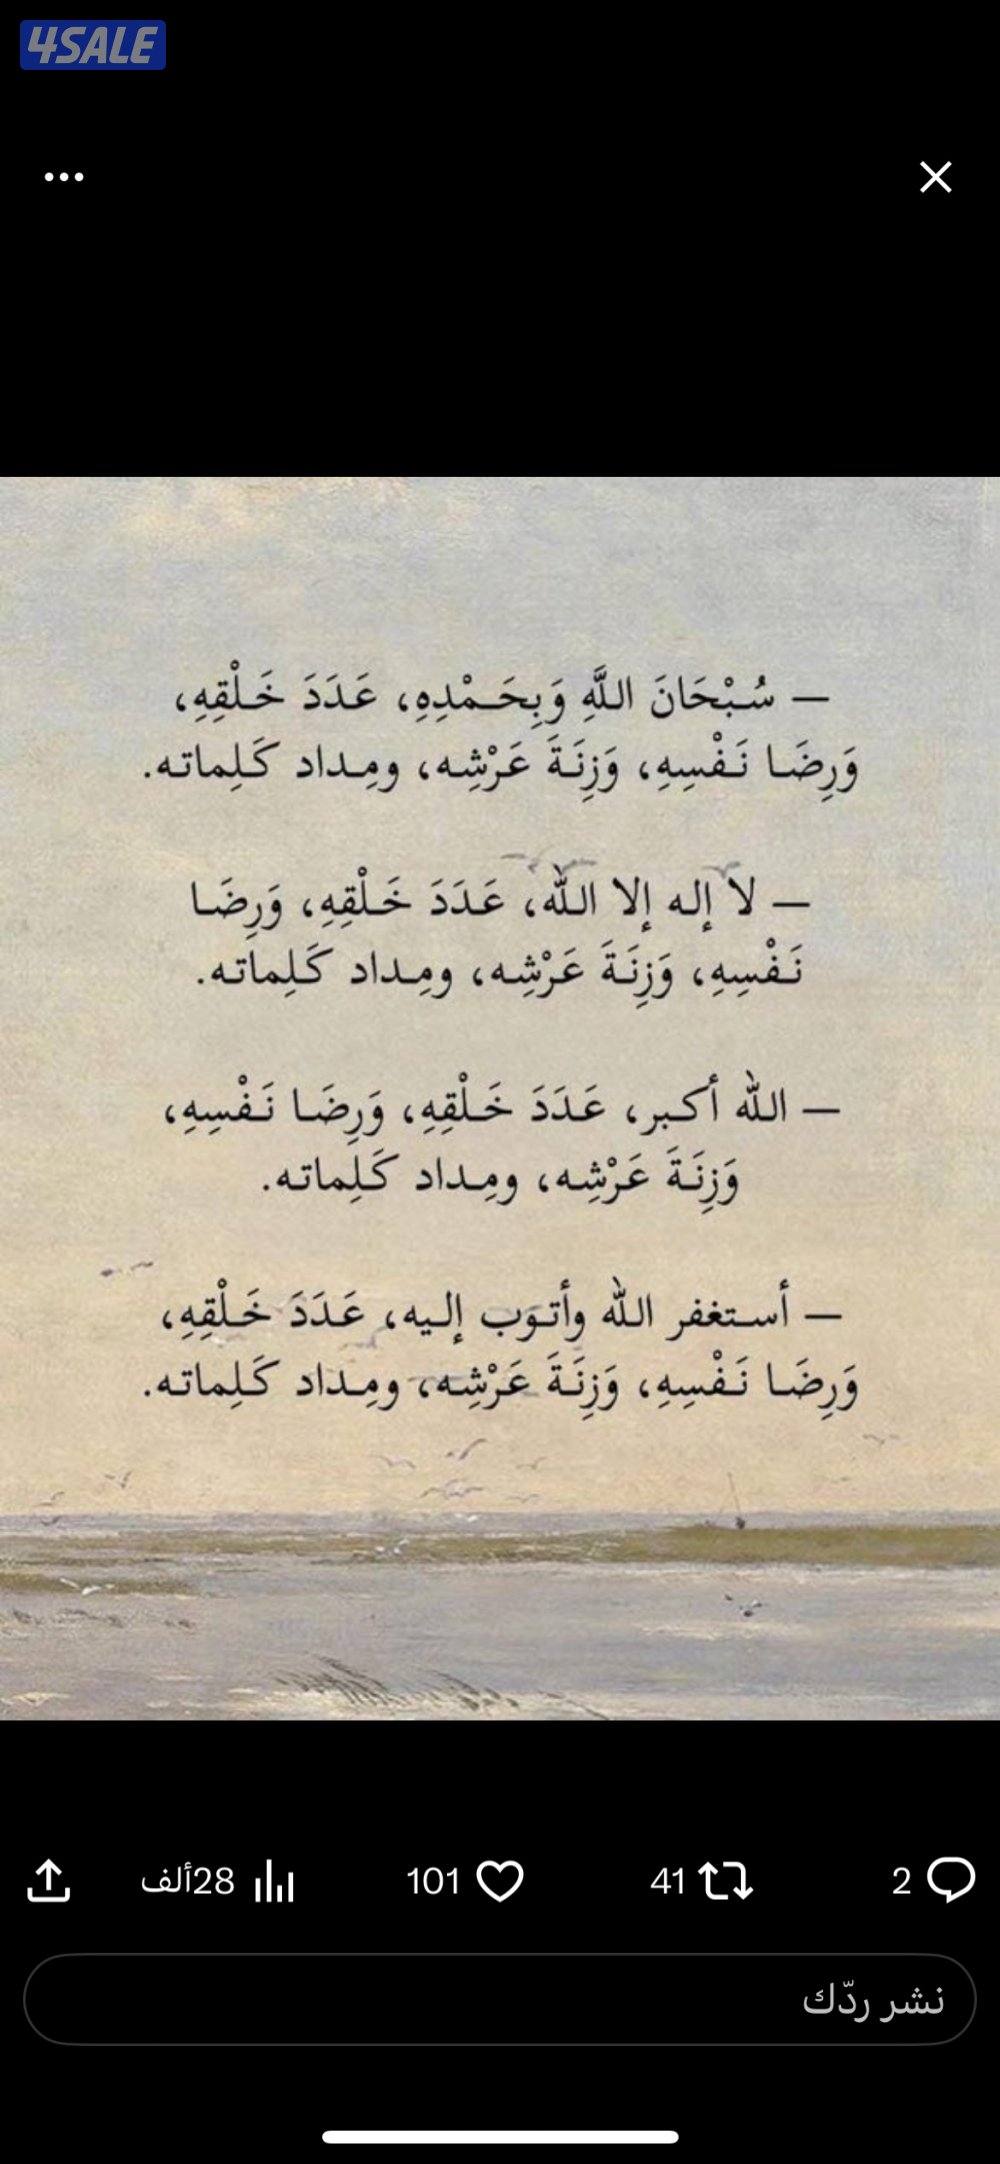 4SALE
— سُبْحَانَ اللَّهِ وَبِحَمْدِهِ، عَدَدَ خَلْقِهِ،
وَرِضَا نَفْسِهِ، وَزِنَةَ عَرْشِه، ومِداد كَلِماته.
— لا إله إلا الله، عَدَدَ خَلْقِهِ، وَرِضَا
نَفْسِهِ، وَزِنَةَ عَرْشِه، ومِداد كَلِماته.
— الله أكبر، عَدَدَ خَلْقِهِ، وَرِضَا نَفْسِهِ،
وَزِنَةَ عَرْشِه، ومِداد كَلِماته.
— أستغفر الله وأتوب إليه، عَدَدَ خَلْقِهِ،
وَرِضَا نَفْسِهِ، وَزِنَةَ عَرْشِه، ومِداد كَلِماته.
2 41 101 28ألف
نشر ردّك